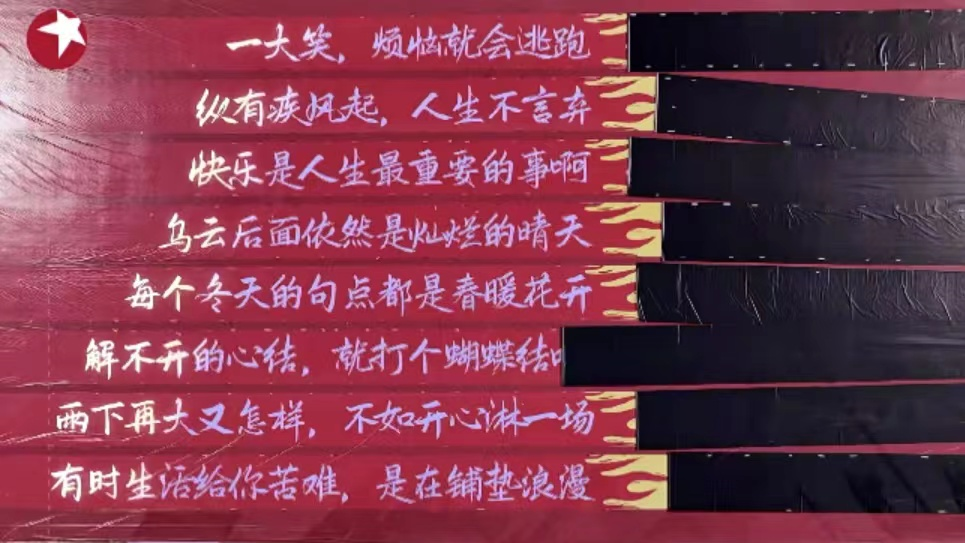 一大笑，烦恼就会逃跑
纵有疾风起，人生不言弃
快乐是人生最重要的事啊
乌云后面依然是灿烂的晴天
每个冬天的句点都是春暖花开
解不开的心结，就打个蝴蝶结
雨下再大又怎样，不如开心淋一场
有时生活给你苦难，是在铺垫浪漫